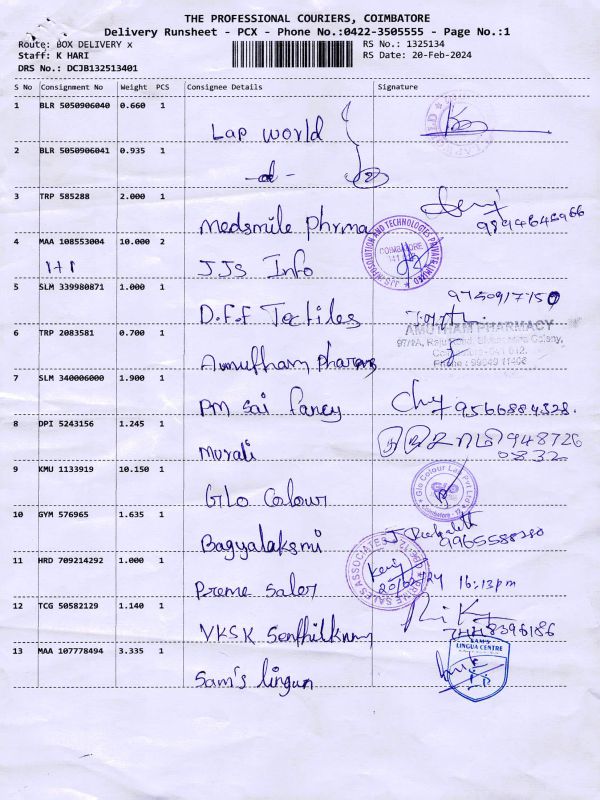 THE PROFESSIONAL COURIERS, COIMBATORE
Delivery Runsheet - PCX - Phone No.:0422-3505555 - Page No.:1
Route: BOX DELIVERY x
RS No.: 1325134
Staff: K HARI
RS Date: 20-Feb-2024
DRS No.: DCJB132513401
S No Consignment No Weight PCS Consignee Details Signature
1 BLR 5050906040 0.660 1 Lap world
2 BLR 5050906041 0.935 1 -d-
3 TRP 585288 2.000 1 medsmile phrma
4 MAA 108553004 10.000 2 JJS Info
1+1
COIMBATORE
5 SLM 339980871 1.000 1 D.F.F Textiles
6 TRP 2083581 0.700 1 Amutham pharma
AMUTHAM PHARMACY
7 SLM 340006000 1.900 1 PM Sai fancy 9566884328.
8 DPI 5243156 1.245 1 Murali 948726
0832
9 KMU 1133919 10.150 1 Glo Colour
Glo Colour Lab Pvt Ltd
GLO
Coimbatore - 12
10 GYM 576965 1.635 1 Bagyalaksmi
9965588280
11 HRD 709214292 1.000 1 Preme Saler
PRIME SALES ASSOCIATES
20/02/24 16:13pm
12 TCG 50582129 1.140 1 VKSK Senthilkumr
13 MAA 107778494 3.335 1 Sam's lingua
SAM'S
LINGUA CENTRE